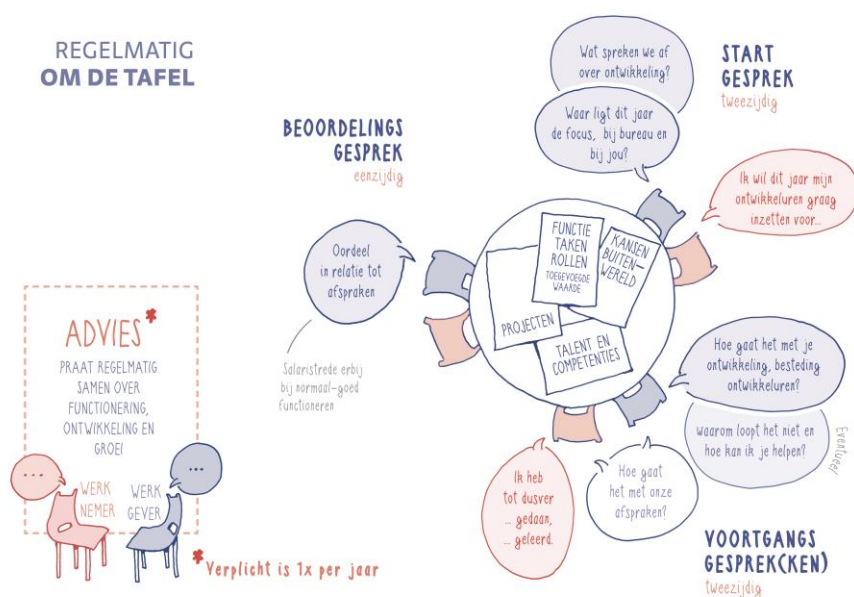 REGELMATIG
OM DE TAFEL
START
GESPREK
tweezijdig
Wat spreken we af
over ontwikkeling?
Waar ligt dit jaar
de focus, bij bureau en
bij jou?
Ik wil dit jaar mijn
ontwikkeluren graag
inzetten voor...
BEOORDELINGS
GESPREK
eenzijdig
Oordeel
in relatie tot
afspraken
Salaristrede erbij
bij normaal-goed
functioneren
FUNCTIE
TAKEN
ROLLEN
TOEGEVOEGDE
WAARDE
KANSEN
BUITEN-
WERELD
PROJECTEN
TALENT EN
COMPETENTIES
Hoe gaat het met je
ontwikkeling, besteding
ontwikkeluren?
waarom loopt het niet en
hoe kan ik je helpen?
Eventueel
Hoe gaat
het met onze
afspraken?
Ik heb
tot dusver
... gedaan,
... geleerd.
VOORTGANGS
GESPREK(KEN)
tweezijdig
ADVIES*
PRAAT REGELMATIG
SAMEN OVER
FUNCTIONERING,
ONTWIKKELING EN
GROEI
...
WERK
NEMER
...
WERK
GEVER
*Verplicht is 1x per jaar